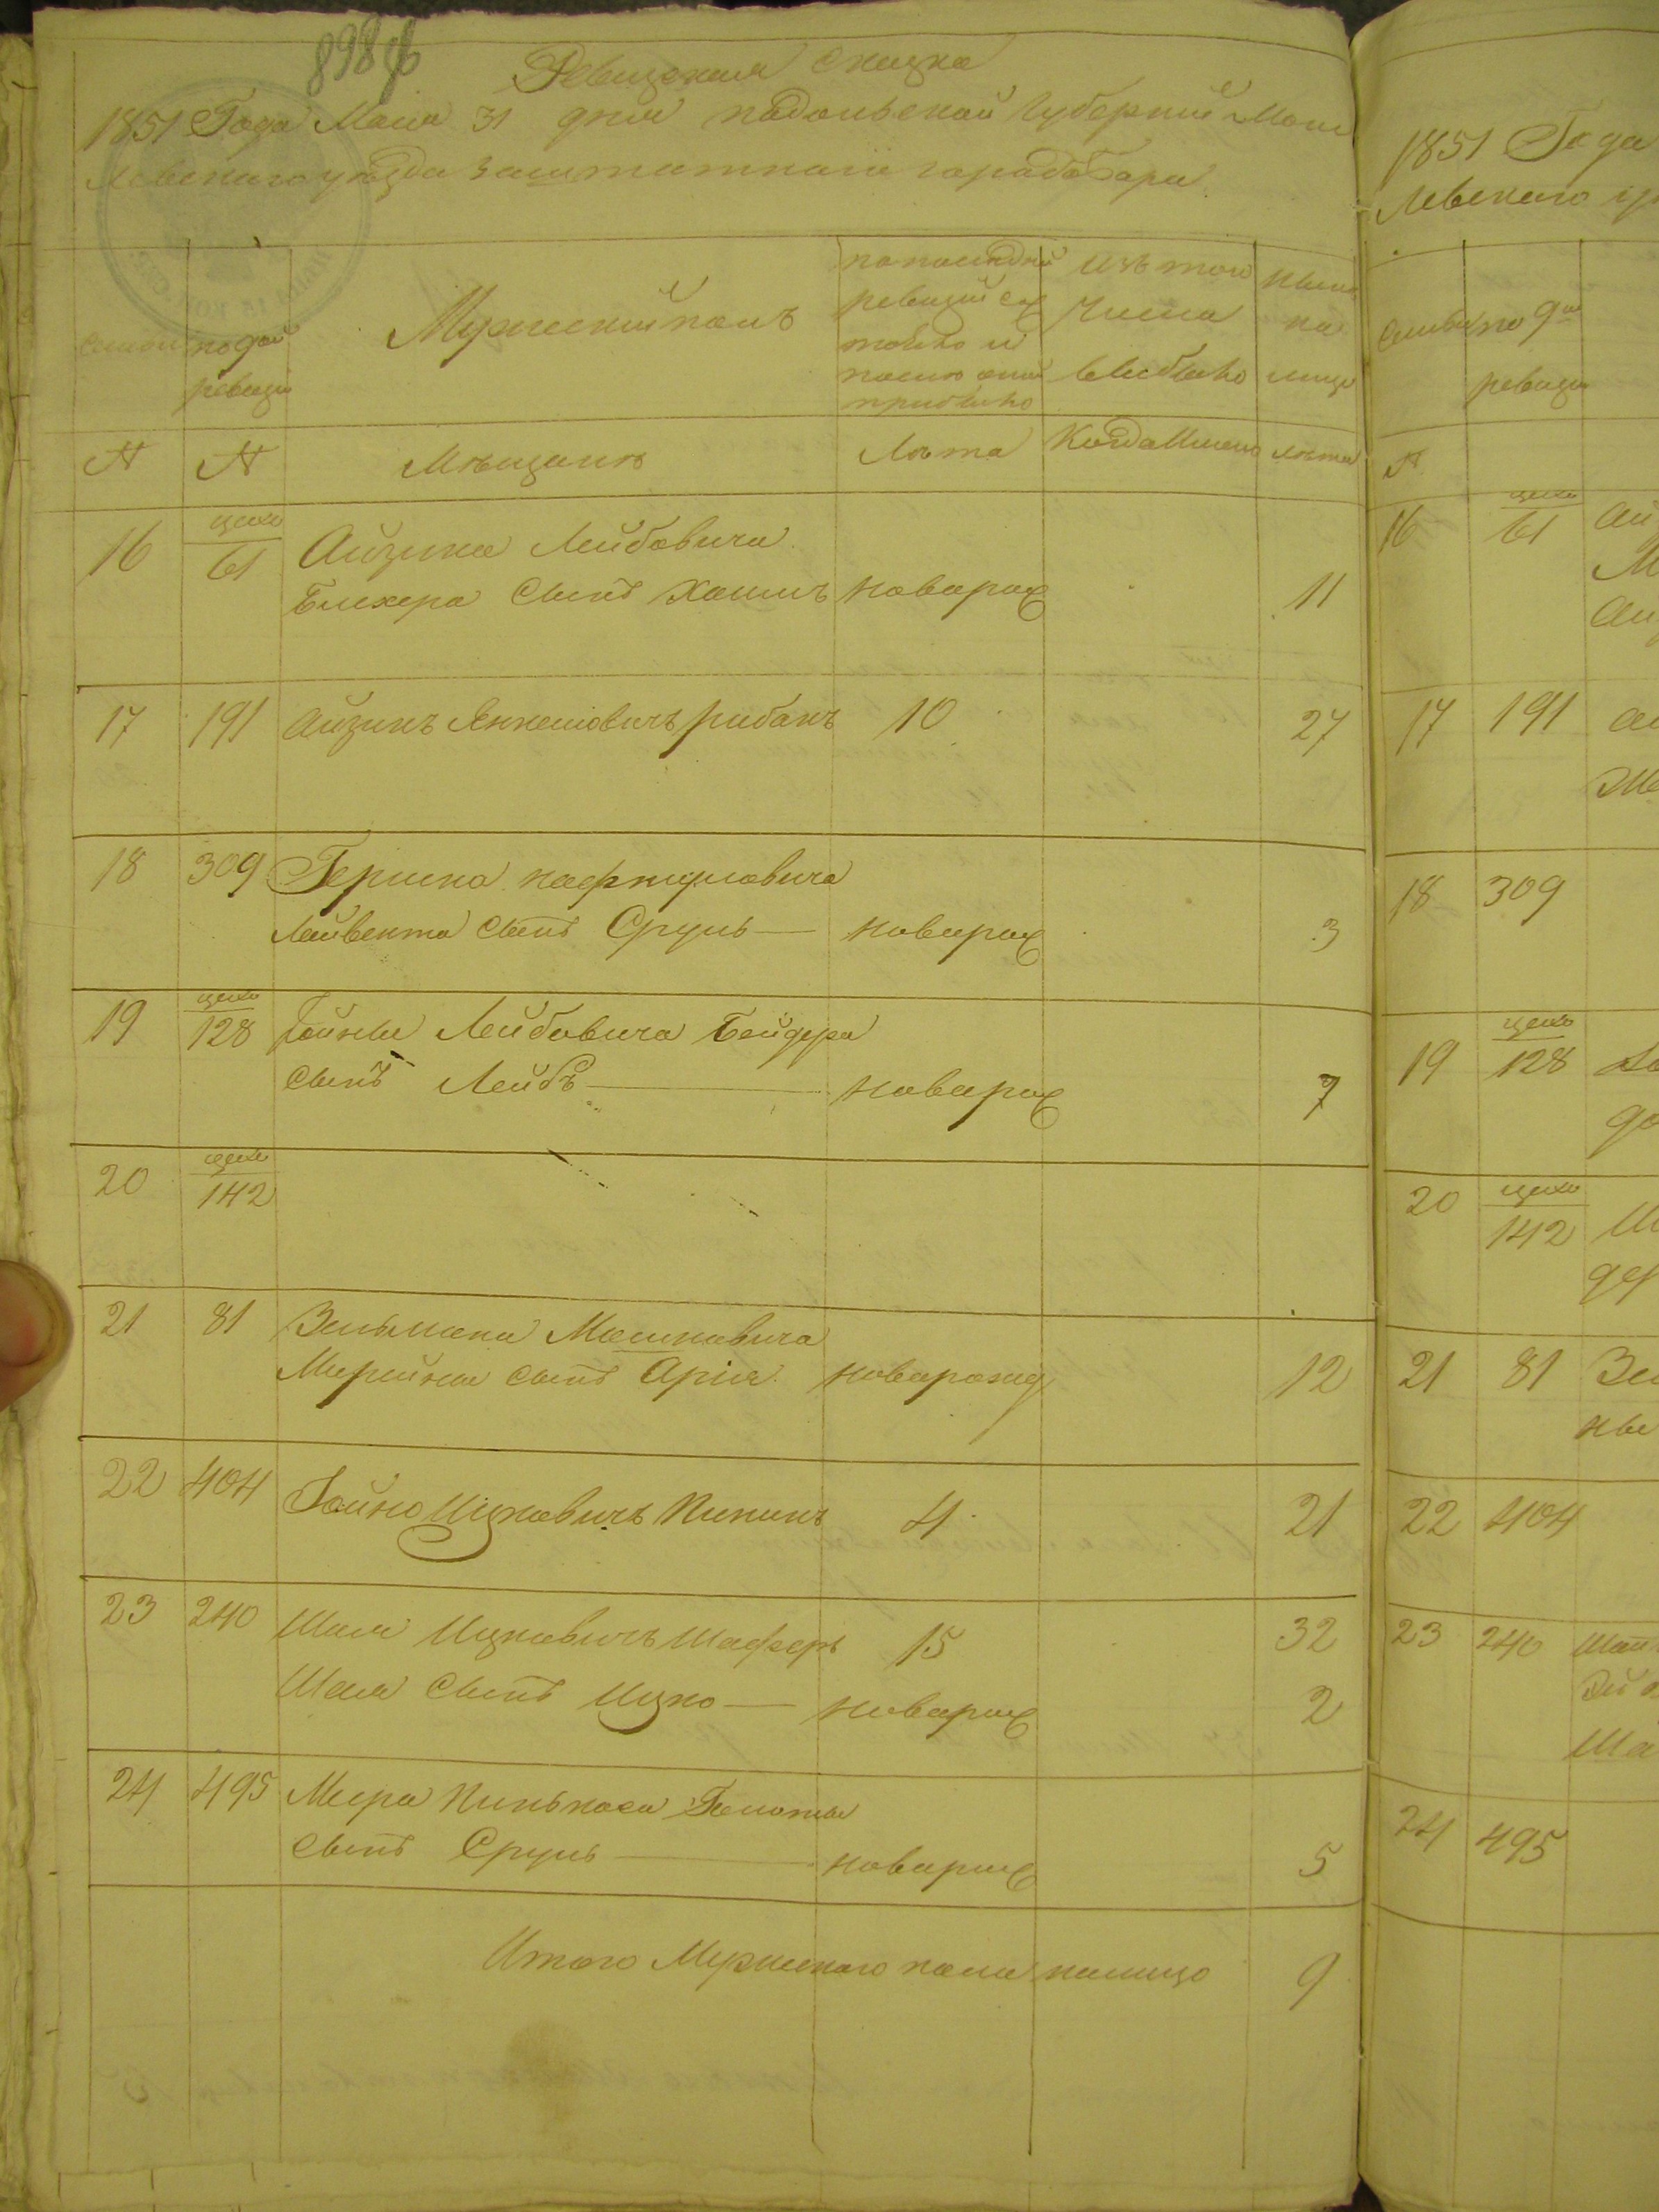 898
Ревизская Сказка
1851 Года Маия 31 дня подольской Губернии Моги
левского уезда Заштатного города Бара
семьи
по 9ой
ревизи
Мужеский полъ
по последней
ревизии со
стояло и
после оной
прибыло
Изъ того
Числа
выбыло
Ныне
на
лицо
№
№
Мещанъ
Лета
Когда Именно
лета
16
цехо
61
Айзика Лейбовича
Блехера Сынъ Хаимъ
новорож
11
17
191
Айзикъ Янкелiовичъ рибакъ
10
27
18
309
Гершка нафтулiовича
Сынъ Сруль
новорож
3
19
цехо
128
Лейбовича Бейдера
Сынъ Лейбъ
новорож
7
20
цехо
142
21
81
Зельмана Мошковича
Сынъ Арiя
новорожд
12
22
404
Ицковичъ
4
21
23
240
Шаiя Ицковичъ Шаферъ
15
32
Шаiя Сынъ Ицко
новорож
2
24
495
Меера Пинькаса
Сынъ Сруль
новорож
5
Итого Мужеского пола налицо
9
1851 Года
левского
семьи
по 9ой
ревизи
№
16
цехо
61
17
191
18
309
19
цехо
128
20
цехо
142
21
81
22
404
23
240
24
495